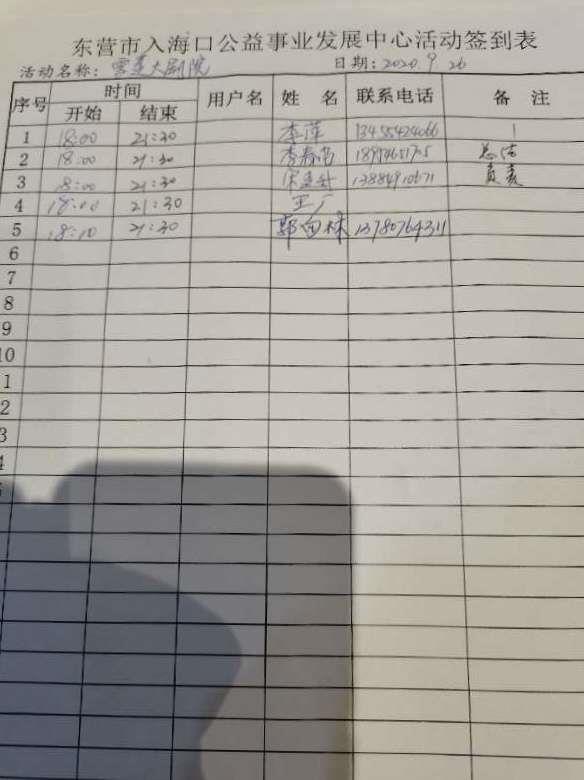 东营市入海口公益事业发展中心活动签到表
活动名称: 雪莲大剧院 日期: 2020.9.26
序号 时间 用户名 姓名 联系电话 备注
开始 结束
1 18:00 21:30 李萍 13455424066
2 18:00 21:30 总结
3 18:00 21:30
4 18:00 21:30 王广
5 18:10 21:30 13780764311
6
7
8
9
10
1
2
3
4